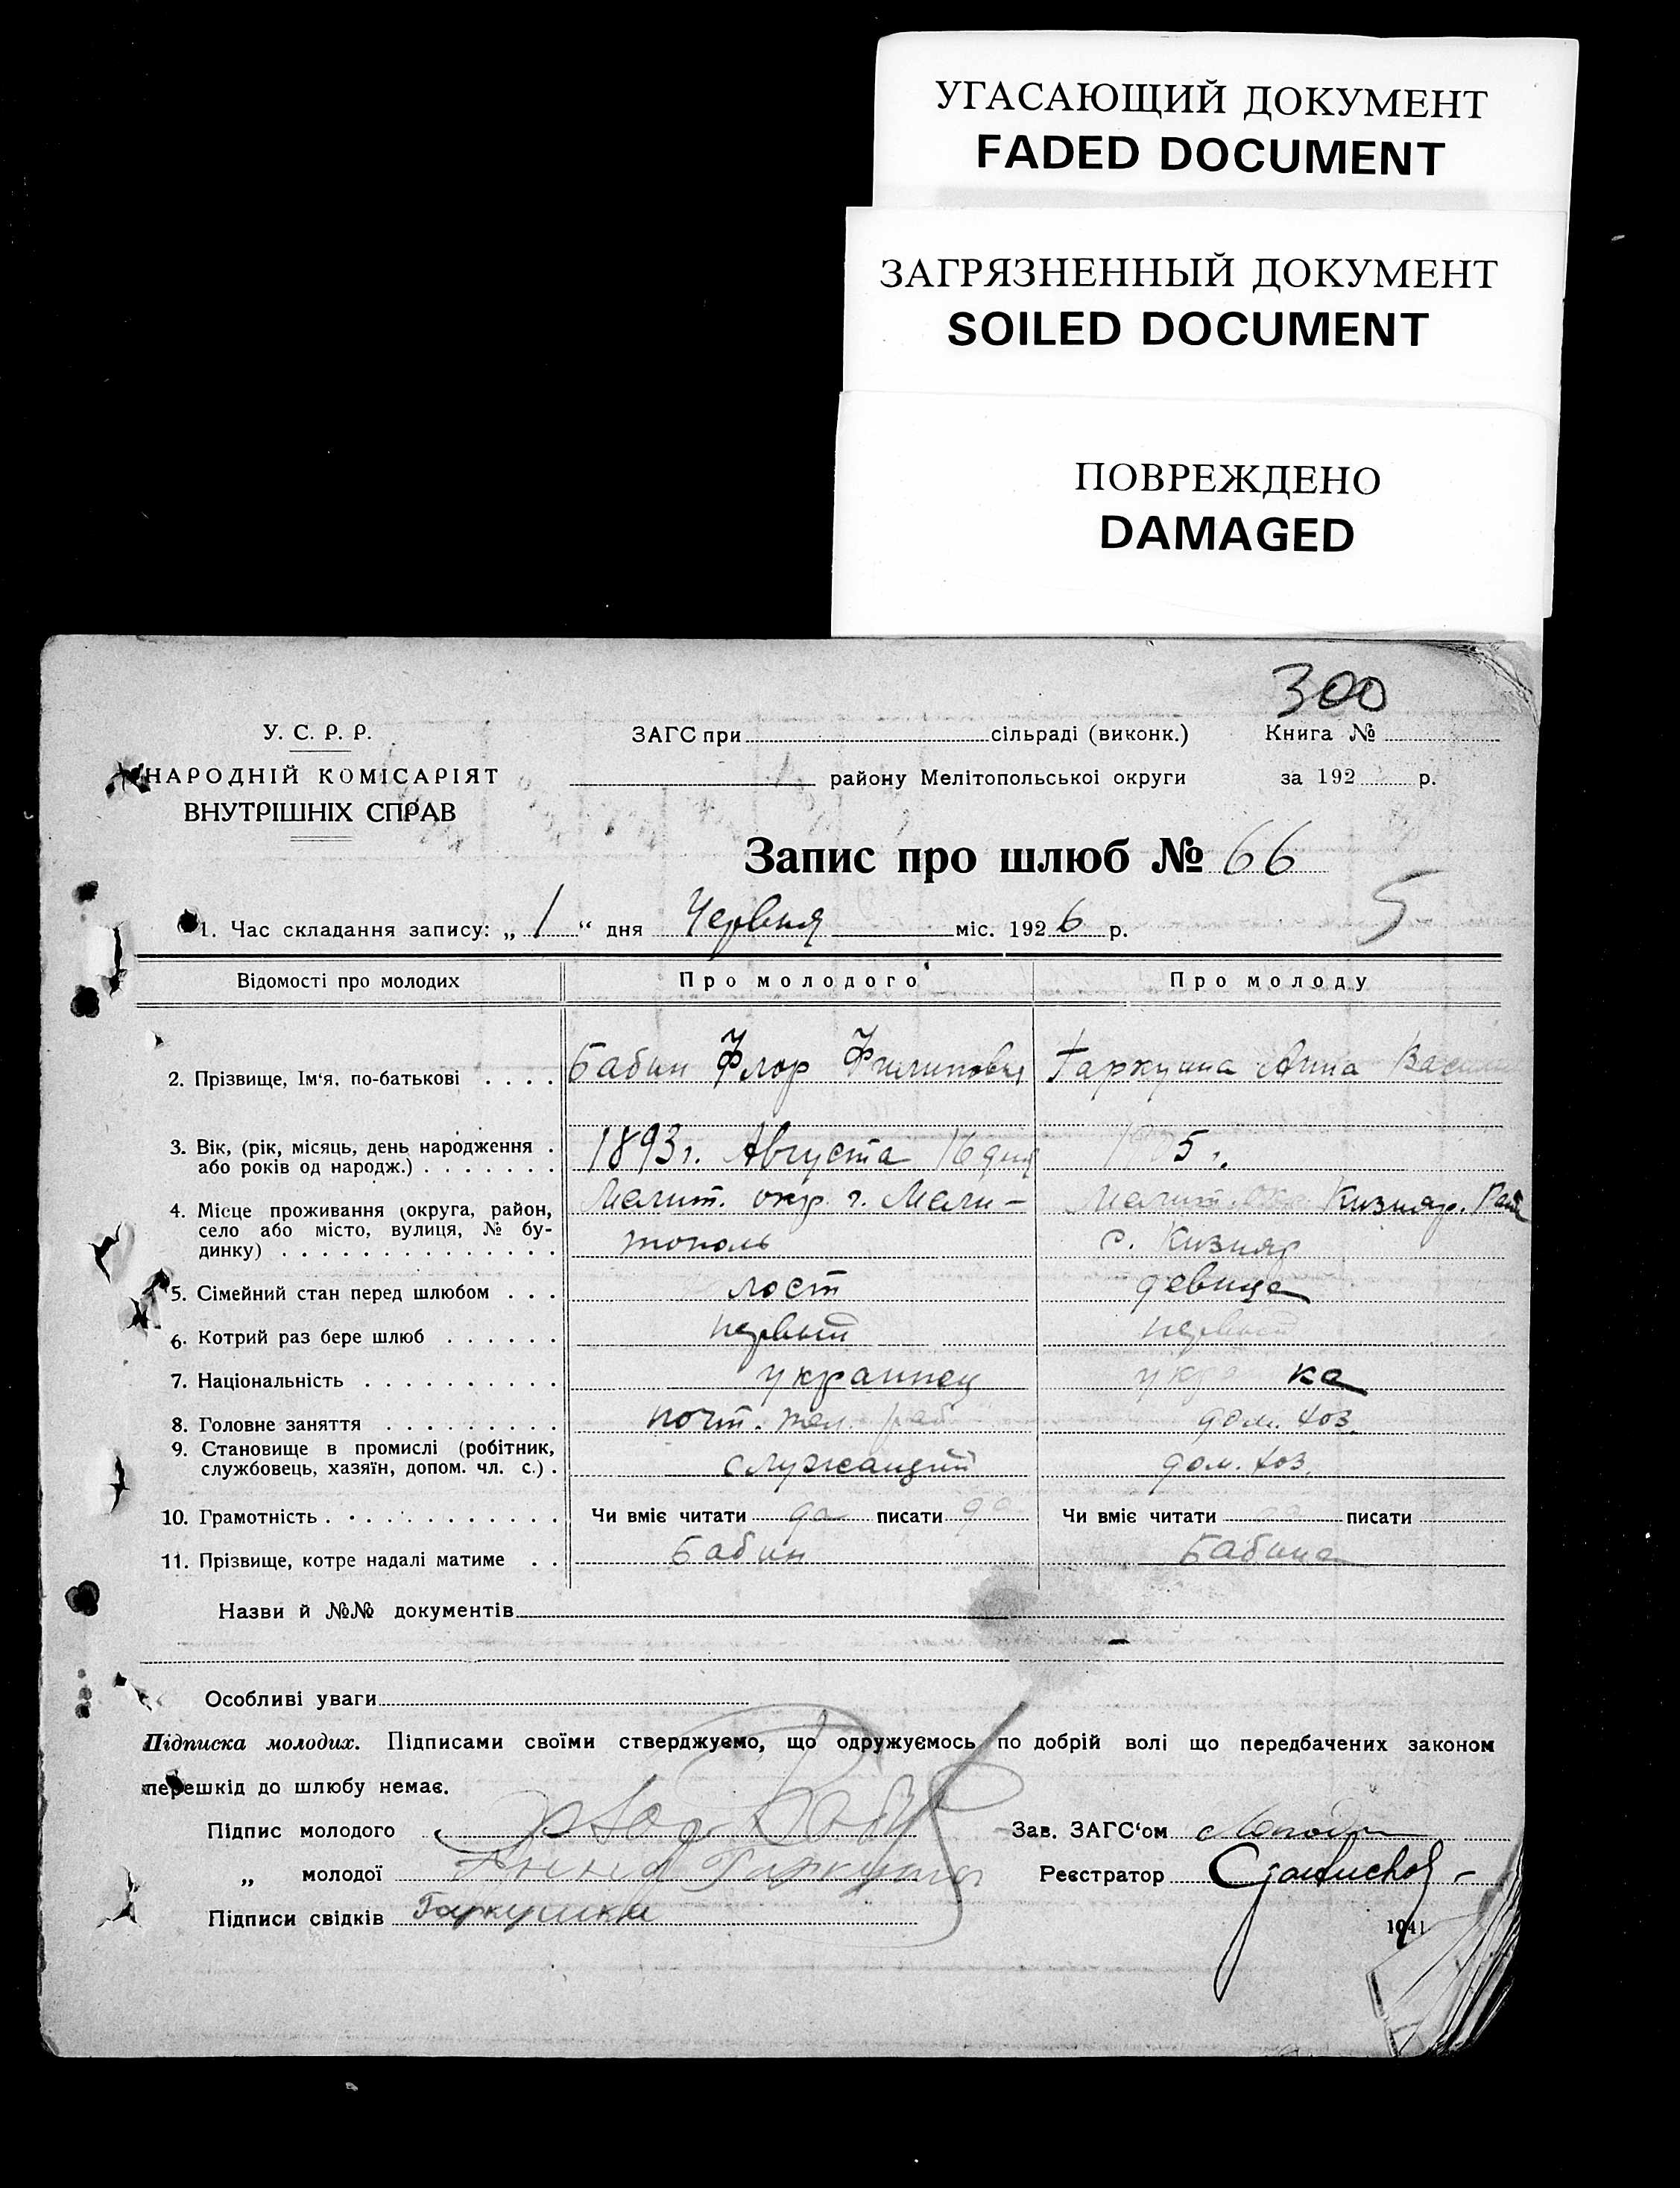 УГАСАЮЩИЙ ДОКУМЕНТ
FADED DOCUMENT
ЗАГРЯЗНЕННЫЙ ДОКУМЕНТ
SOILED DOCUMENT
ПОВРЕЖДЕНО
DAMAGED
300
У. С. Р. Р.
ЗАГС при сільраді (виконк.) Книга №
НАРОДНІЙ КОМІСАРІЯТ
району Мелітопольської округи за 192 р.
ВНУТРІШНІХ СПРАВ
Запис про шлюб № 66
5
1. Час складання запису: „ 1 “ дня Червня міс. 1926 р.
Відомості про молодих Про молодого Про молоду
2. Прізвище, Ім‘я, по-батькові . . . . Бабин Флор Филипович Гаркуша Анна
3. Вік, (рік, місяць, день народження . або років од народж.) . . . . . . . 1893 г. Августа 16 дня 5 г.
4. Місце проживання (округа, район, Мелит. окр. г. Мели- Мелит. окр. Кизияр.
село або місто, вулиця, № бу- тополь с. Кизияр
динку) . . . . . . . . . . . . . .
5. Сімейний стан перед шлюбом . . . лост девица
6. Котрий раз бере шлюб . . . . . . первый первый
7. Національність . . . . . . . . . . украинец укр ка
8. Головне заняття . . . . . . . . . почт. тел. раб дом. хоз.
9. Становище в промислі (робітник,
службовець, хазяїн, допом. чл. с.) . служащий дом. хоз.
10. Грамотність . . . . . . . . . . . . Чи вміє читати да писати да Чи вміє читати да писати
11. Прізвище, котре надалі матиме . . Бабин Бабина
Назви й №№ документів
Особливі уваги
Підписка молодих. Підписами своїми стверджуємо, що одружуємось по добрій волі що передбачених законом
перешкід до шлюбу немає.
Підпис молодого Зав. ЗАГС‘ом
„ молодої Анна Гаркуша Реєстратор
Підписи свідків
1041